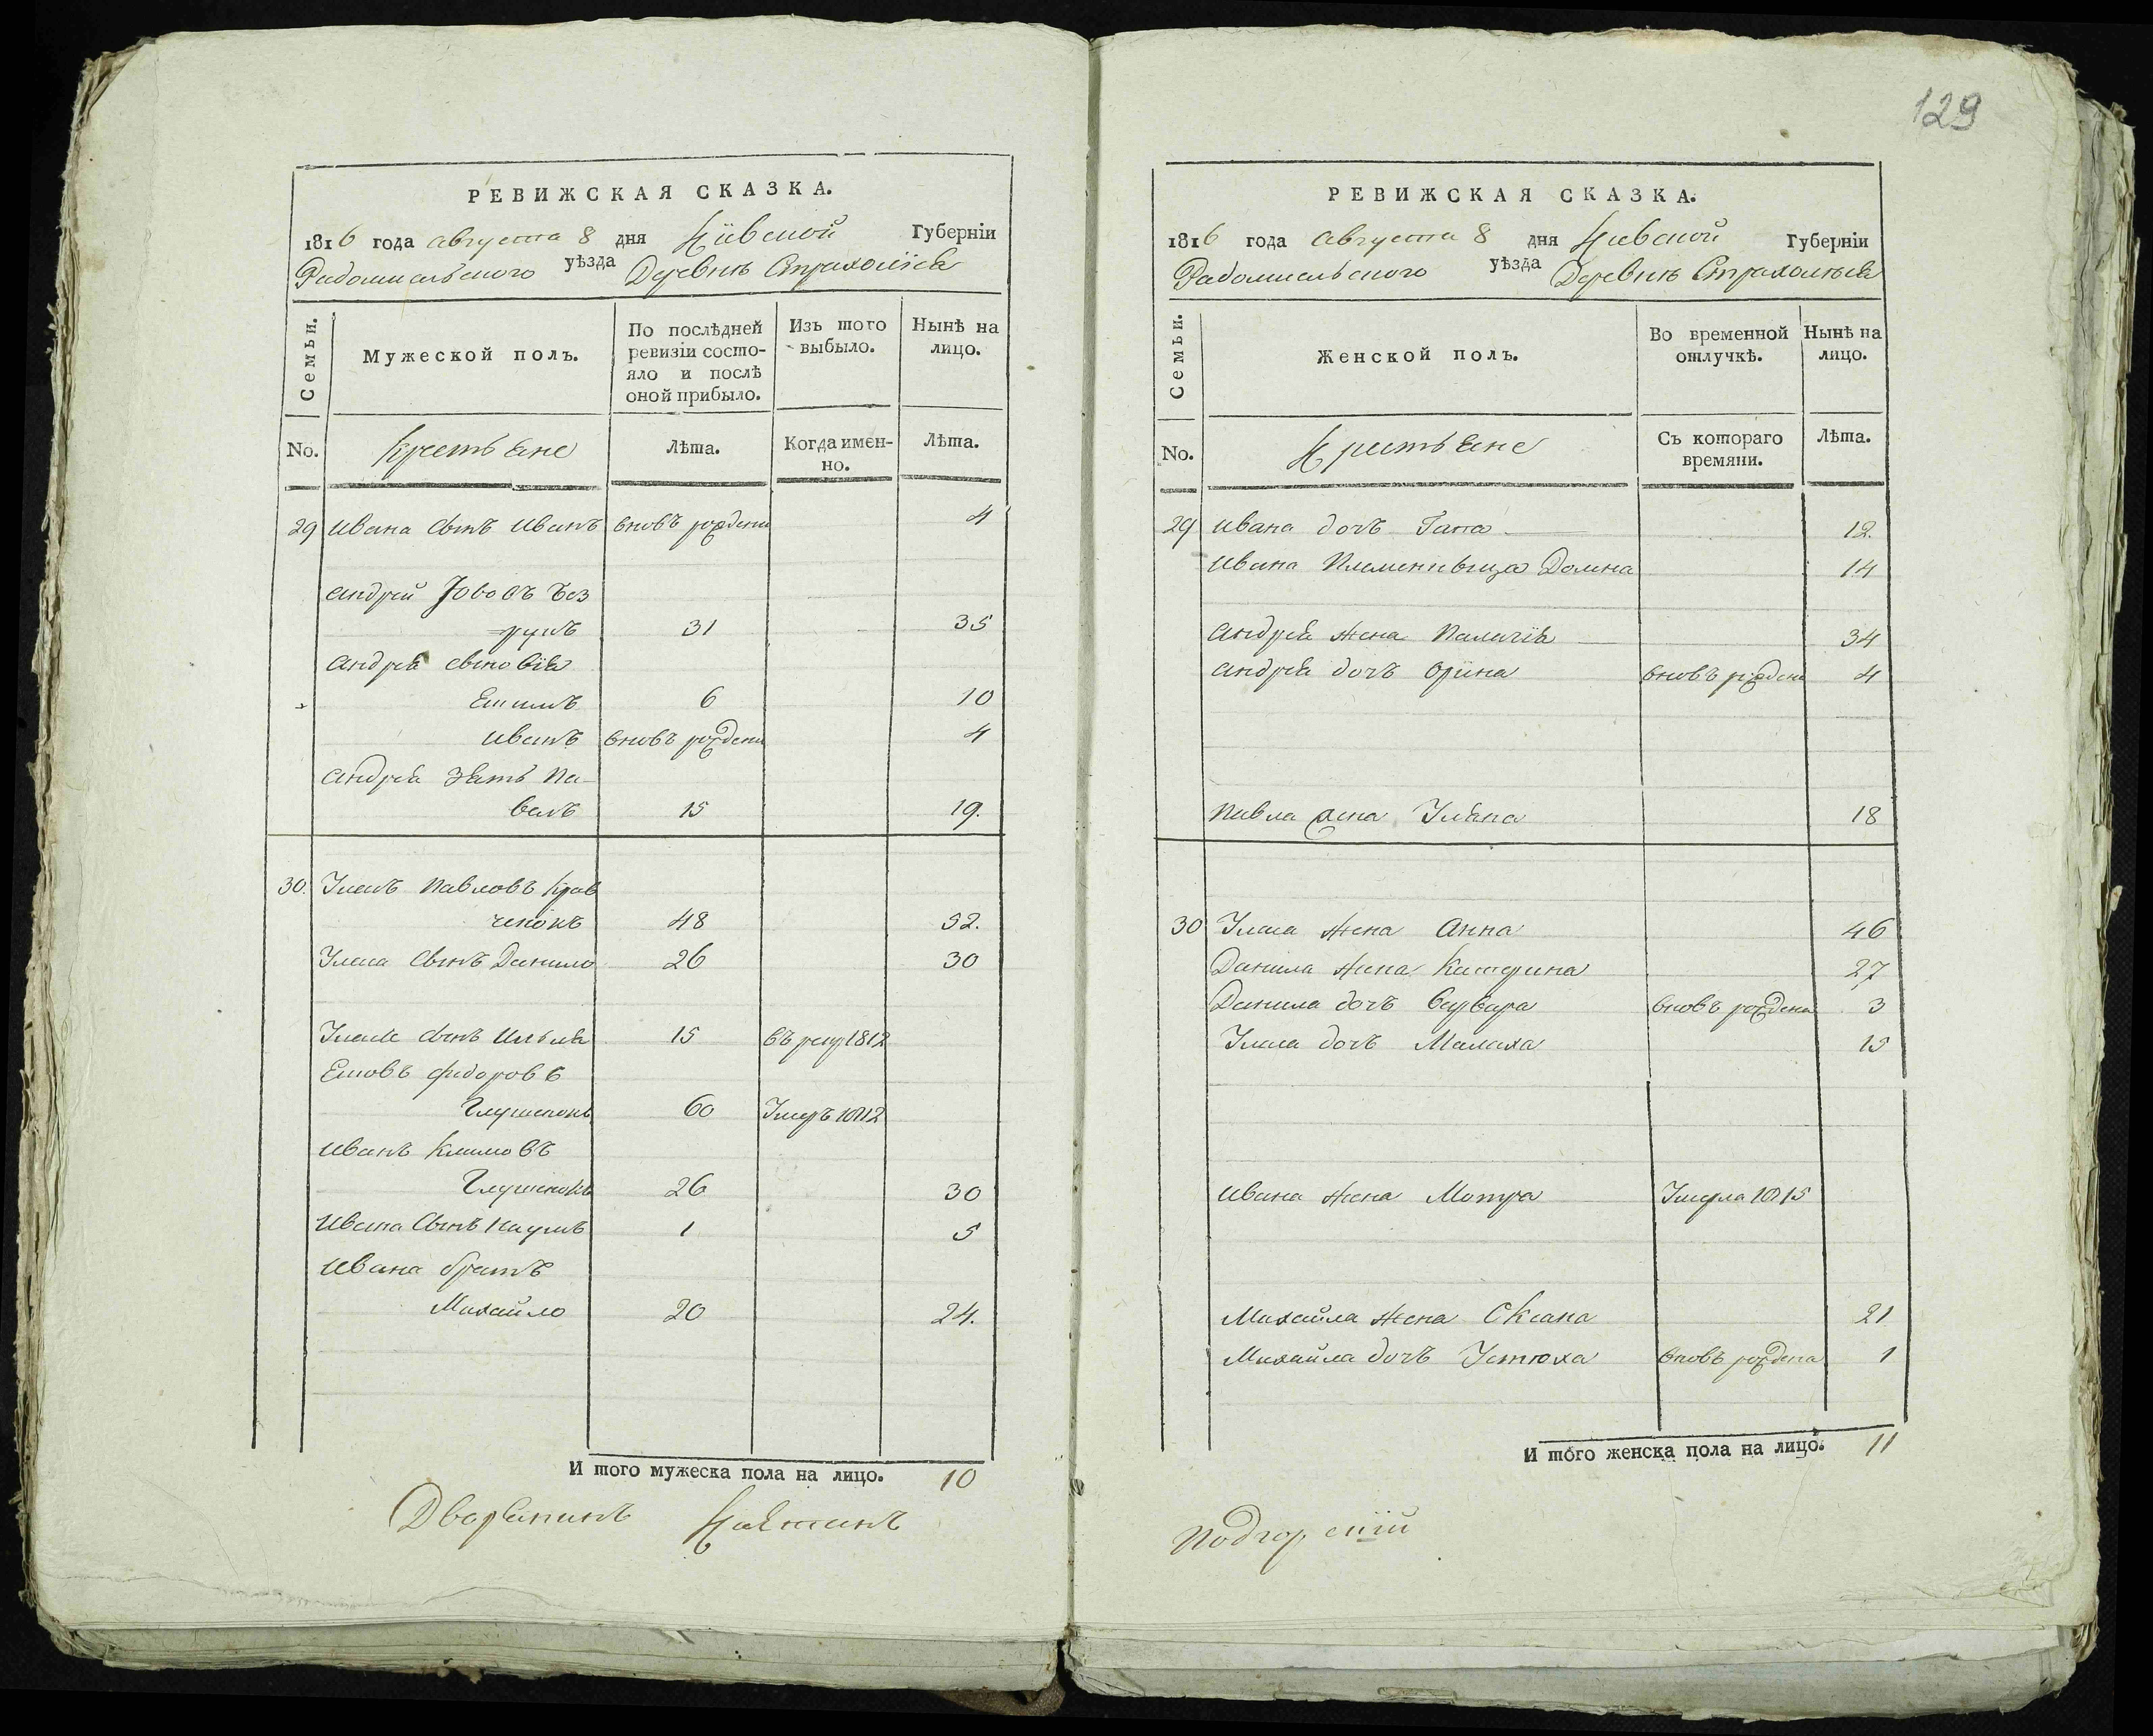 129
РЕВИЖСКАЯ СКАЗКА.
1816 года августа 8 дня Кіевской Губерніи
Радомисльского уѣзда Деревнѣ Страхолѣся
Семьи.
Мужеской полъ.
По послѣдней ревизіи состо-
яло и послѣ
оной прибыло.
Изъ того выбыло.
Нынѣ на лицо.
No.
Крестьяне
Лѣта.
Когда имен-
но.
Лѣта.
29 Ивана сынъ Иванъ вновь рожденъ 4
Андрей
31 35
Андрея сыновья
6 10
Иванъ вновь рожденъ 4
Андрея зять Па-
велъ 15 19.
30. Уласъ Павловъ Крав
ченокъ 48 52.
Уласа сынъ Данило 26 30
Уласа сынъ Илья 15 въ рекр 1812
Федоровъ
Глушенокъ 60 Умеръ 1812
Иванъ Климовъ
Глушенокъ 26 30
Ивана сынъ Наумъ 1 5
Ивана братъ
Михайло 20 24.
И того мужеска пола на лицо. 10
Дворянинъ
РЕВИЖСКАЯ СКАЗКА.
1816 года Августа 8 дня Киевской Губерніи
Радомисльского уѣзда Деревнѣ Страхолѣся
Семьи.
Женской полъ.
Во временной
отлучкѣ.
Нынѣ на
лицо.
No.
Крестьяне
Съ котораго
времяни.
Лѣта.
29 Ивана дочъ Гапа 12.
Ивана Племенныца Домна 14
Андрея жена Палагія 34
Андрея дочъ Орина вновь рождена 4
Павла жена Уляна 18
30 Уласа жена Анна 46
Данила жена Катерина 27
Данила дочъ Варвара вновь рождена 3
Уласа дочъ Малаха 15
Ивана жена Мотра Умерла 1815
Михайла жена Оксана 21
Михайла дочъ Устюха вновь рождена 1
И того женска пола на лицо. 11
Подгорскій